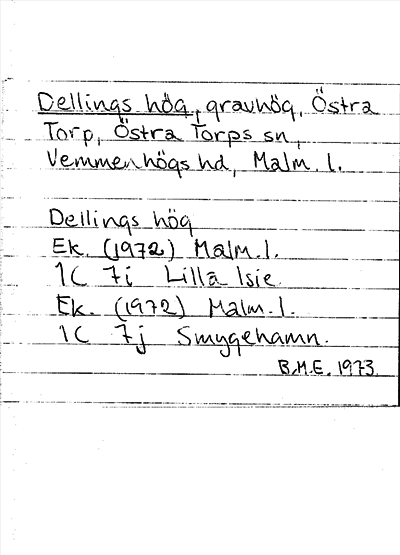 Dellings hög, gravhög, Östra
Torp, Östra Torps sn,
Vemmenhögs hd, Malm. l.
Dellings hög
Ek. (1972) Malm. l.
1C 7i Lilla Isie.
Ek. (1972) Malm. l.
1C 7j Smygehamn.
B.M.E. 1973.